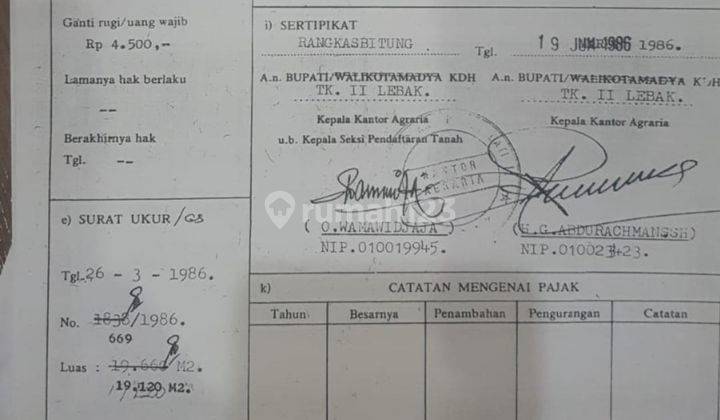 Ganti rugi/uang wajib
Rp 4.500,-
Lamanya hak berlaku
--
Berakhirnya hak
Tgl. --
e) SURAT UKUR/GS
Tgl. 26 - 3 - 1986.
No. 1838/1986.
669
Luas : 19.660 M2.
19.120 M2.
i) SERTIPIKAT
RANGKASBITUNG
Tgl. 19 1986 1986.
A.n. BUPATI/WALIKOTAMADYA KDH
TK. II LEBAK.
Kepala Kantor Agraria
u.b. Kepala Seksi Pendaftaran Tanah
(O.WAMAWIDJAJA)
NIP.010019945.
A.n. BUPATI/WALIKOTAMADYA KDH
TK. II LEBAK.
Kepala Kantor Agraria
(H.G.ABDURACHMANSSH)
NIP.010023423.
KANTOR
AGRARIA
rumah123
k) CATATAN MENGENAI PAJAK
Tahun Besarnya Penambahan Pengurangan Catatan